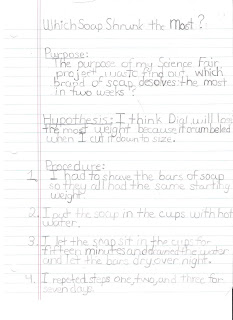 Which Soap Shrunk the Most?
Purpose:
The purpose of my Science Fair
project was to find out which
brand of soap desolves the most
in two weeks?
Hypothesis: I think Dial will los
the most weight because it crumbeled
when I cut it down to size.
Procedure:
1. I had to shave the bars of soap
so they all had the same starting
weight.
2. I put the soap in the cups with hot
water.
3. I let the soap sit in the cups for
fifteen minutes and drained the water
and let the bars dry over night.
4. I repeted steps one, two, and three for
seven days.